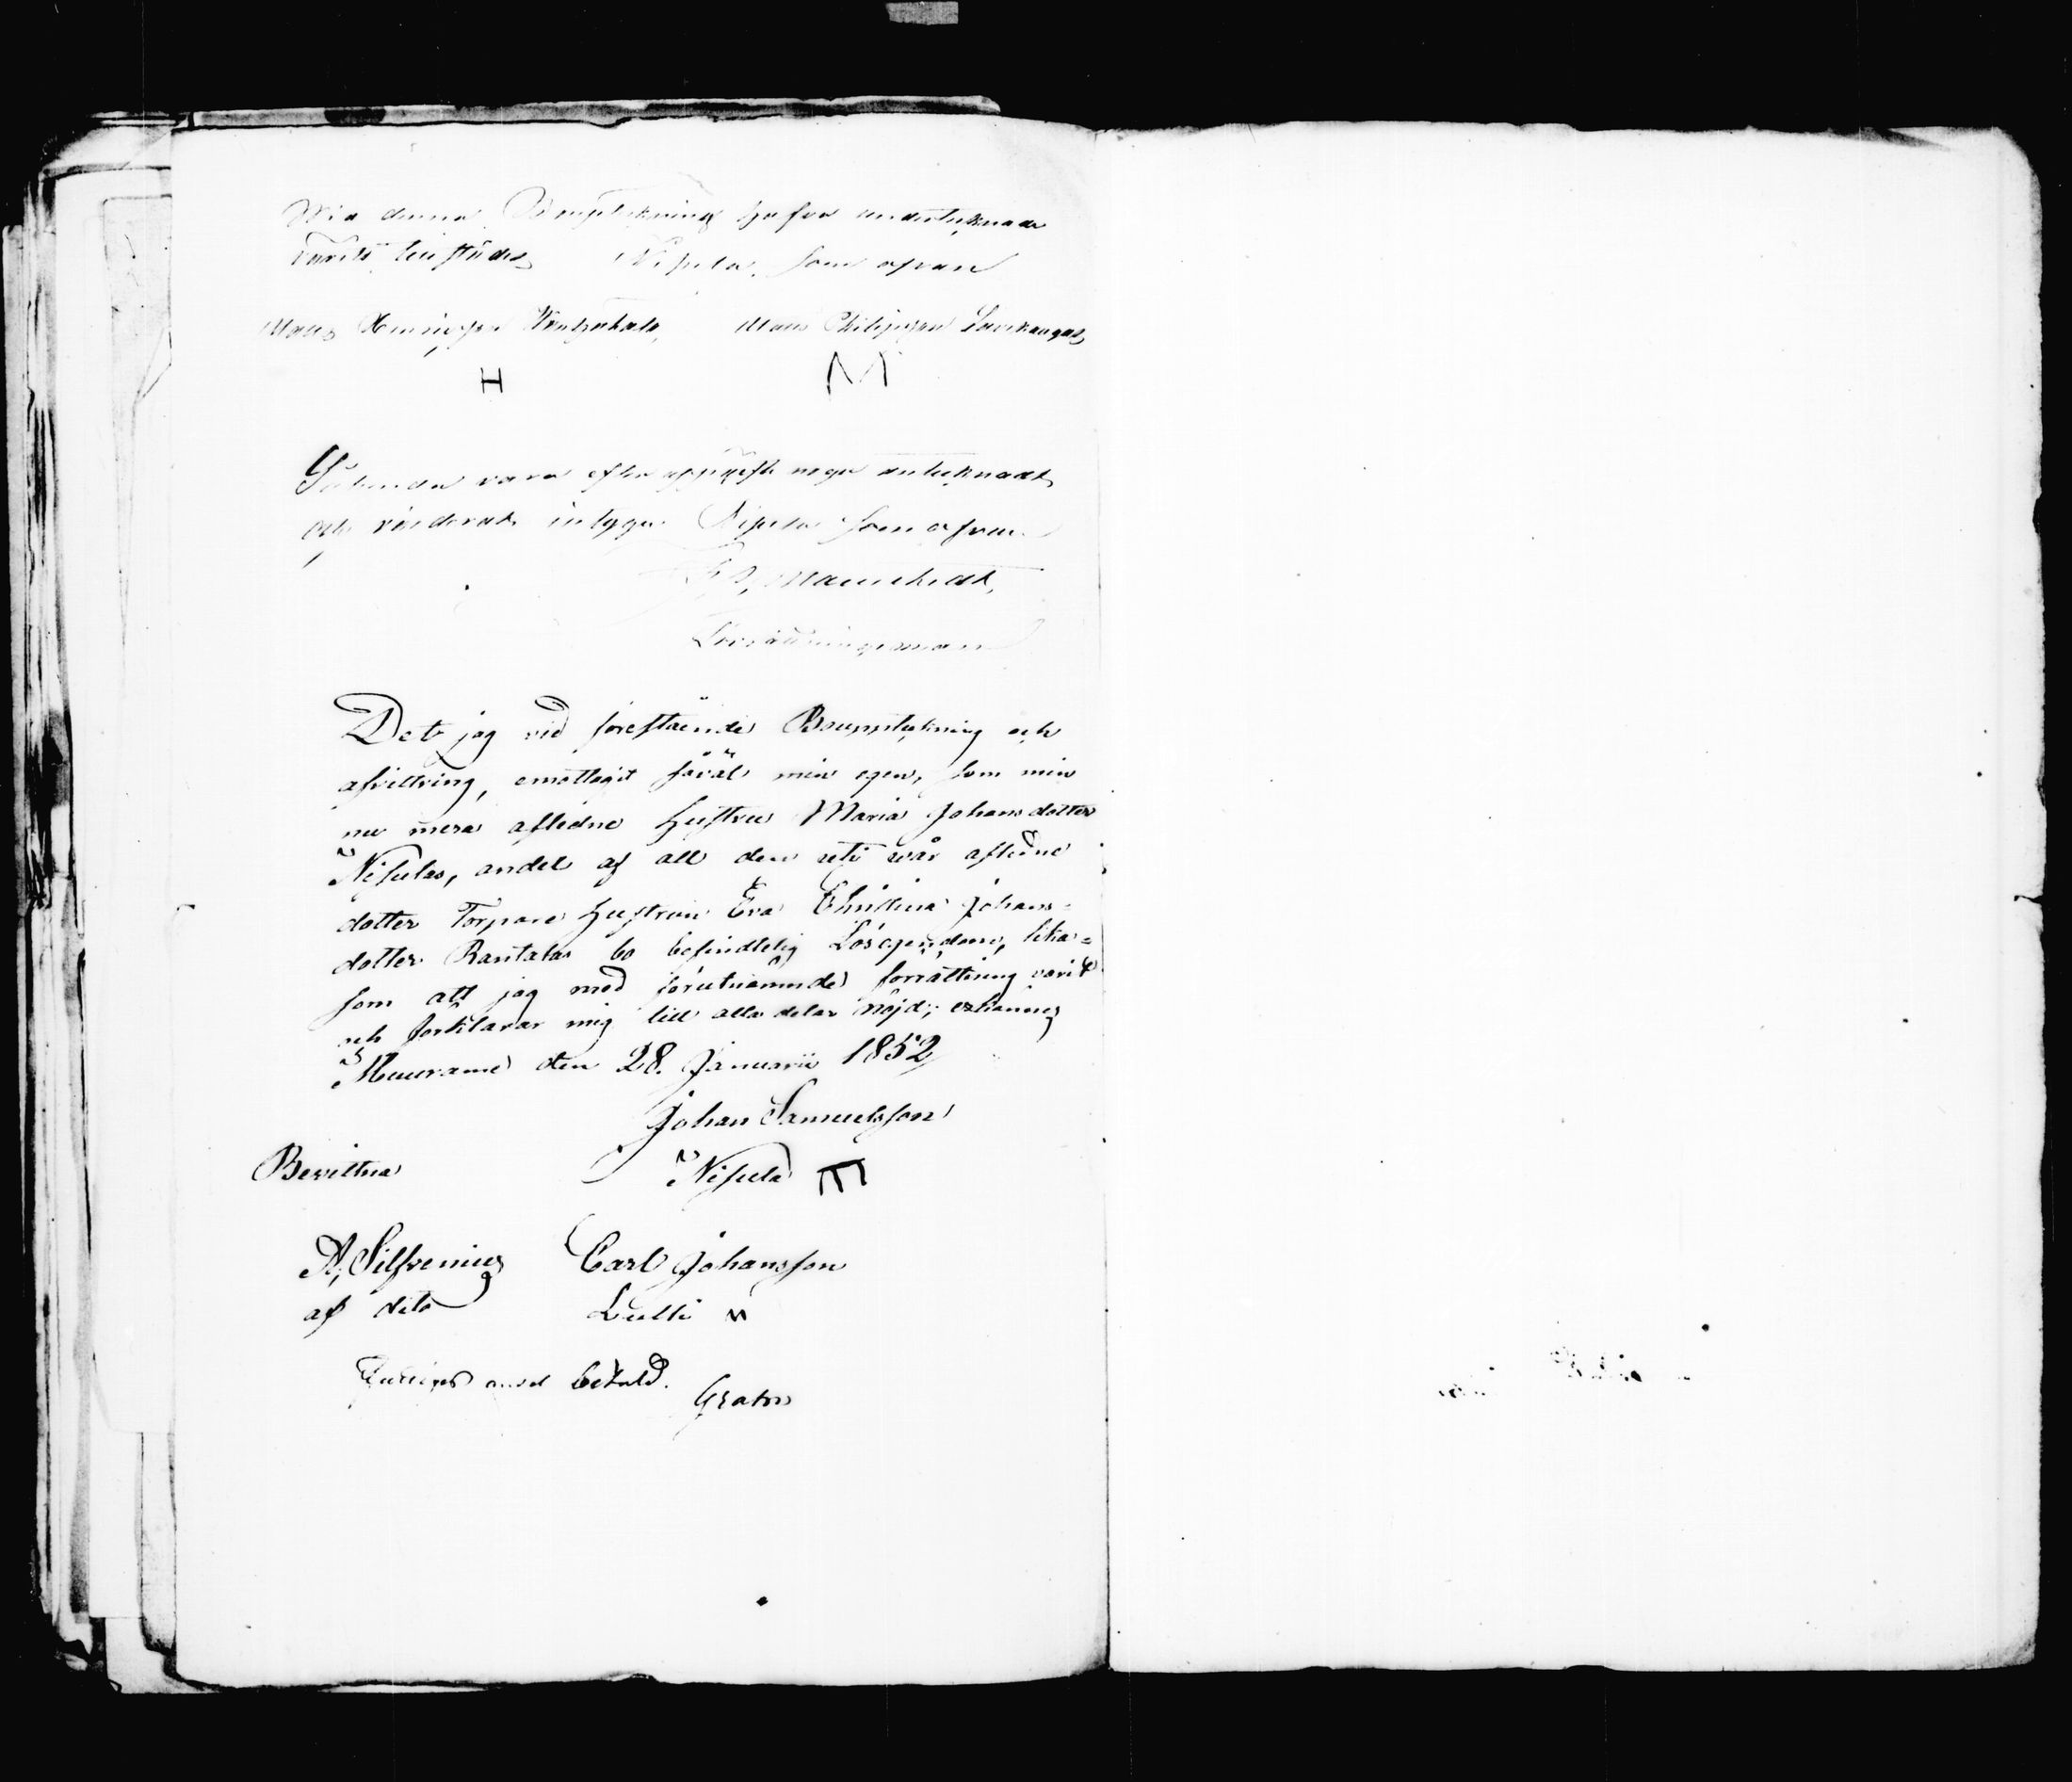 Wid denna Bouptekning hafva underteknade
varit tillstädes Nisula, som ofvan
Mats Henricsson Mats Philipsson
H M
Sålunda vara efter uppgift noga anteknadt
och värderat intygar Nisula som ofvan
Förrättningsman
Det jag vid förestående Bouppteckning och
afvittring, emottagit såväl min egen, som min
nu mera aflidne Hustru Maria Johansdotter
Nisulas, andel af all den uti wår aflidne
dotter Torpare Hustrun Eva Christina Johans=
dotter Rantalas bo befindtelig Lösegendom, lika=
som att jag med förutnämnde förrättning varit
och förklarar mig till alla delar nöjd; erkännes
Muurame den 28. Januarii 1852
Johan Samuelsson
Bevittna Nisula
A, Silfvenius Carl Johansson
af dito Lulli
Fattiges andel betald.
Gratis